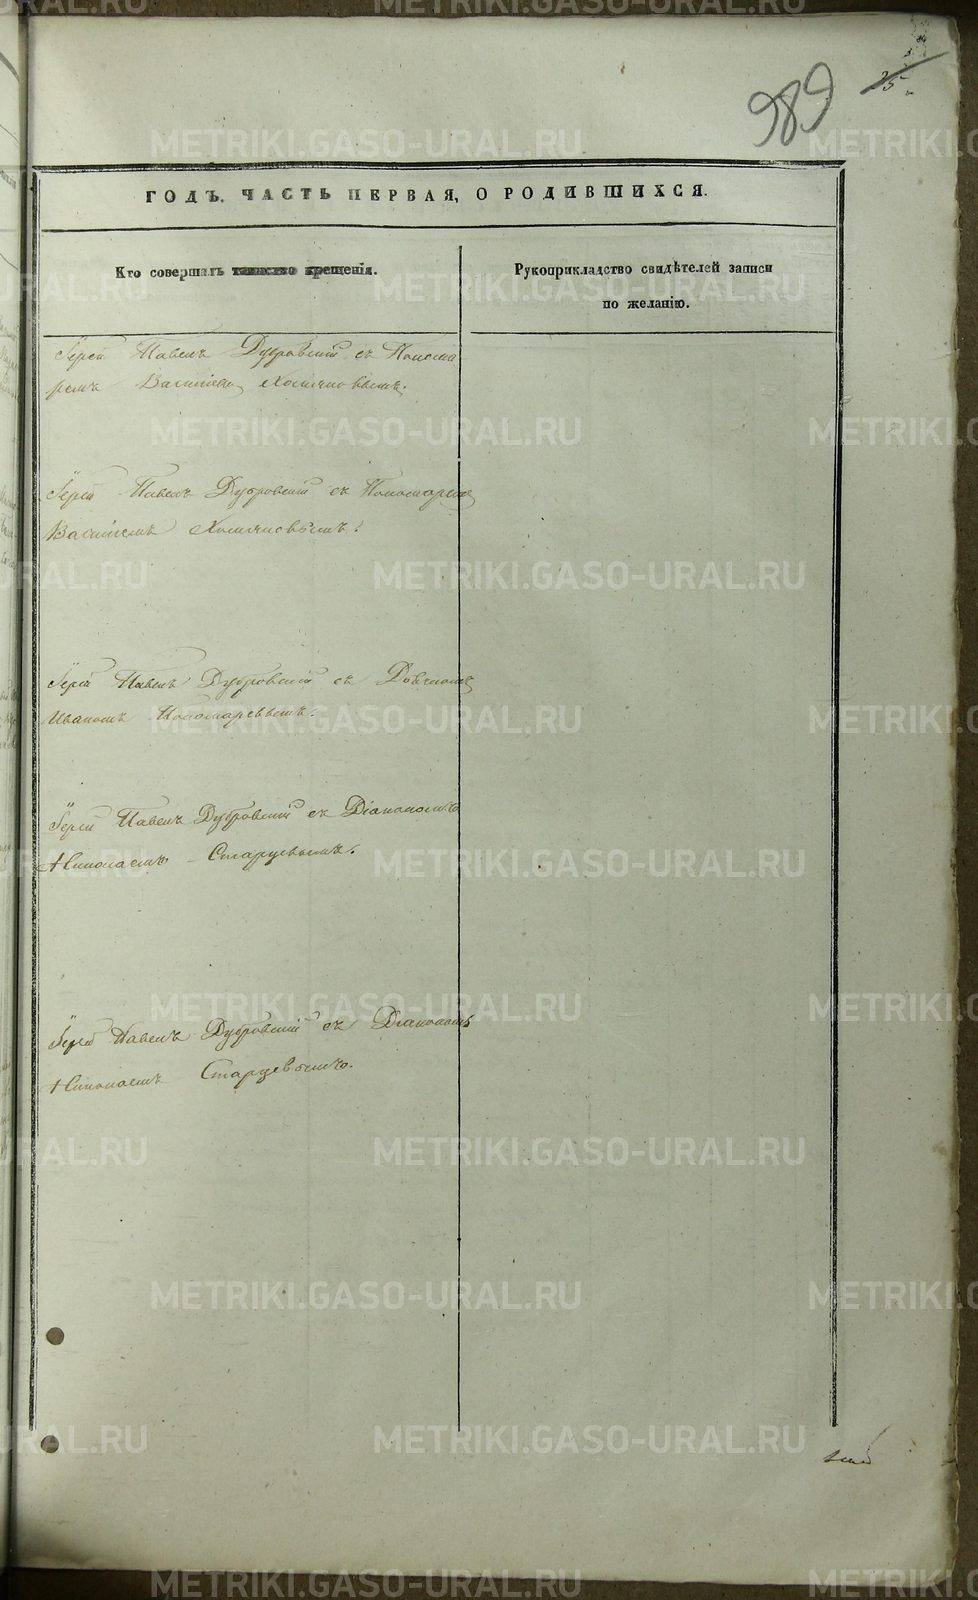 989
25
ГОДЪ. ЧАСТЬ ПЕРВАЯ, О РОДИВШИХСЯ.
Кто совершалъ таинство крещенія.
Рукоприкладство свидѣтелей записи
по желанію.
Іерей Павелъ Дубровскій съ Понома
ремъ Василіемъ Хомяковымъ.
Іерей Павелъ Дубровскій съ Пономаремъ
Василіемъ Хомяковымъ.
Іерей Павелъ Дубровскій съ
Иваномъ Пономаревымъ.
Іерей Павелъ Дубровскій съ Діакономъ
Николаемъ Старцевымъ.
Іерей Павелъ Дубровскій съ Діакономъ
Николаемъ Старцевымъ.
METRIKI.GASO-URAL.RU